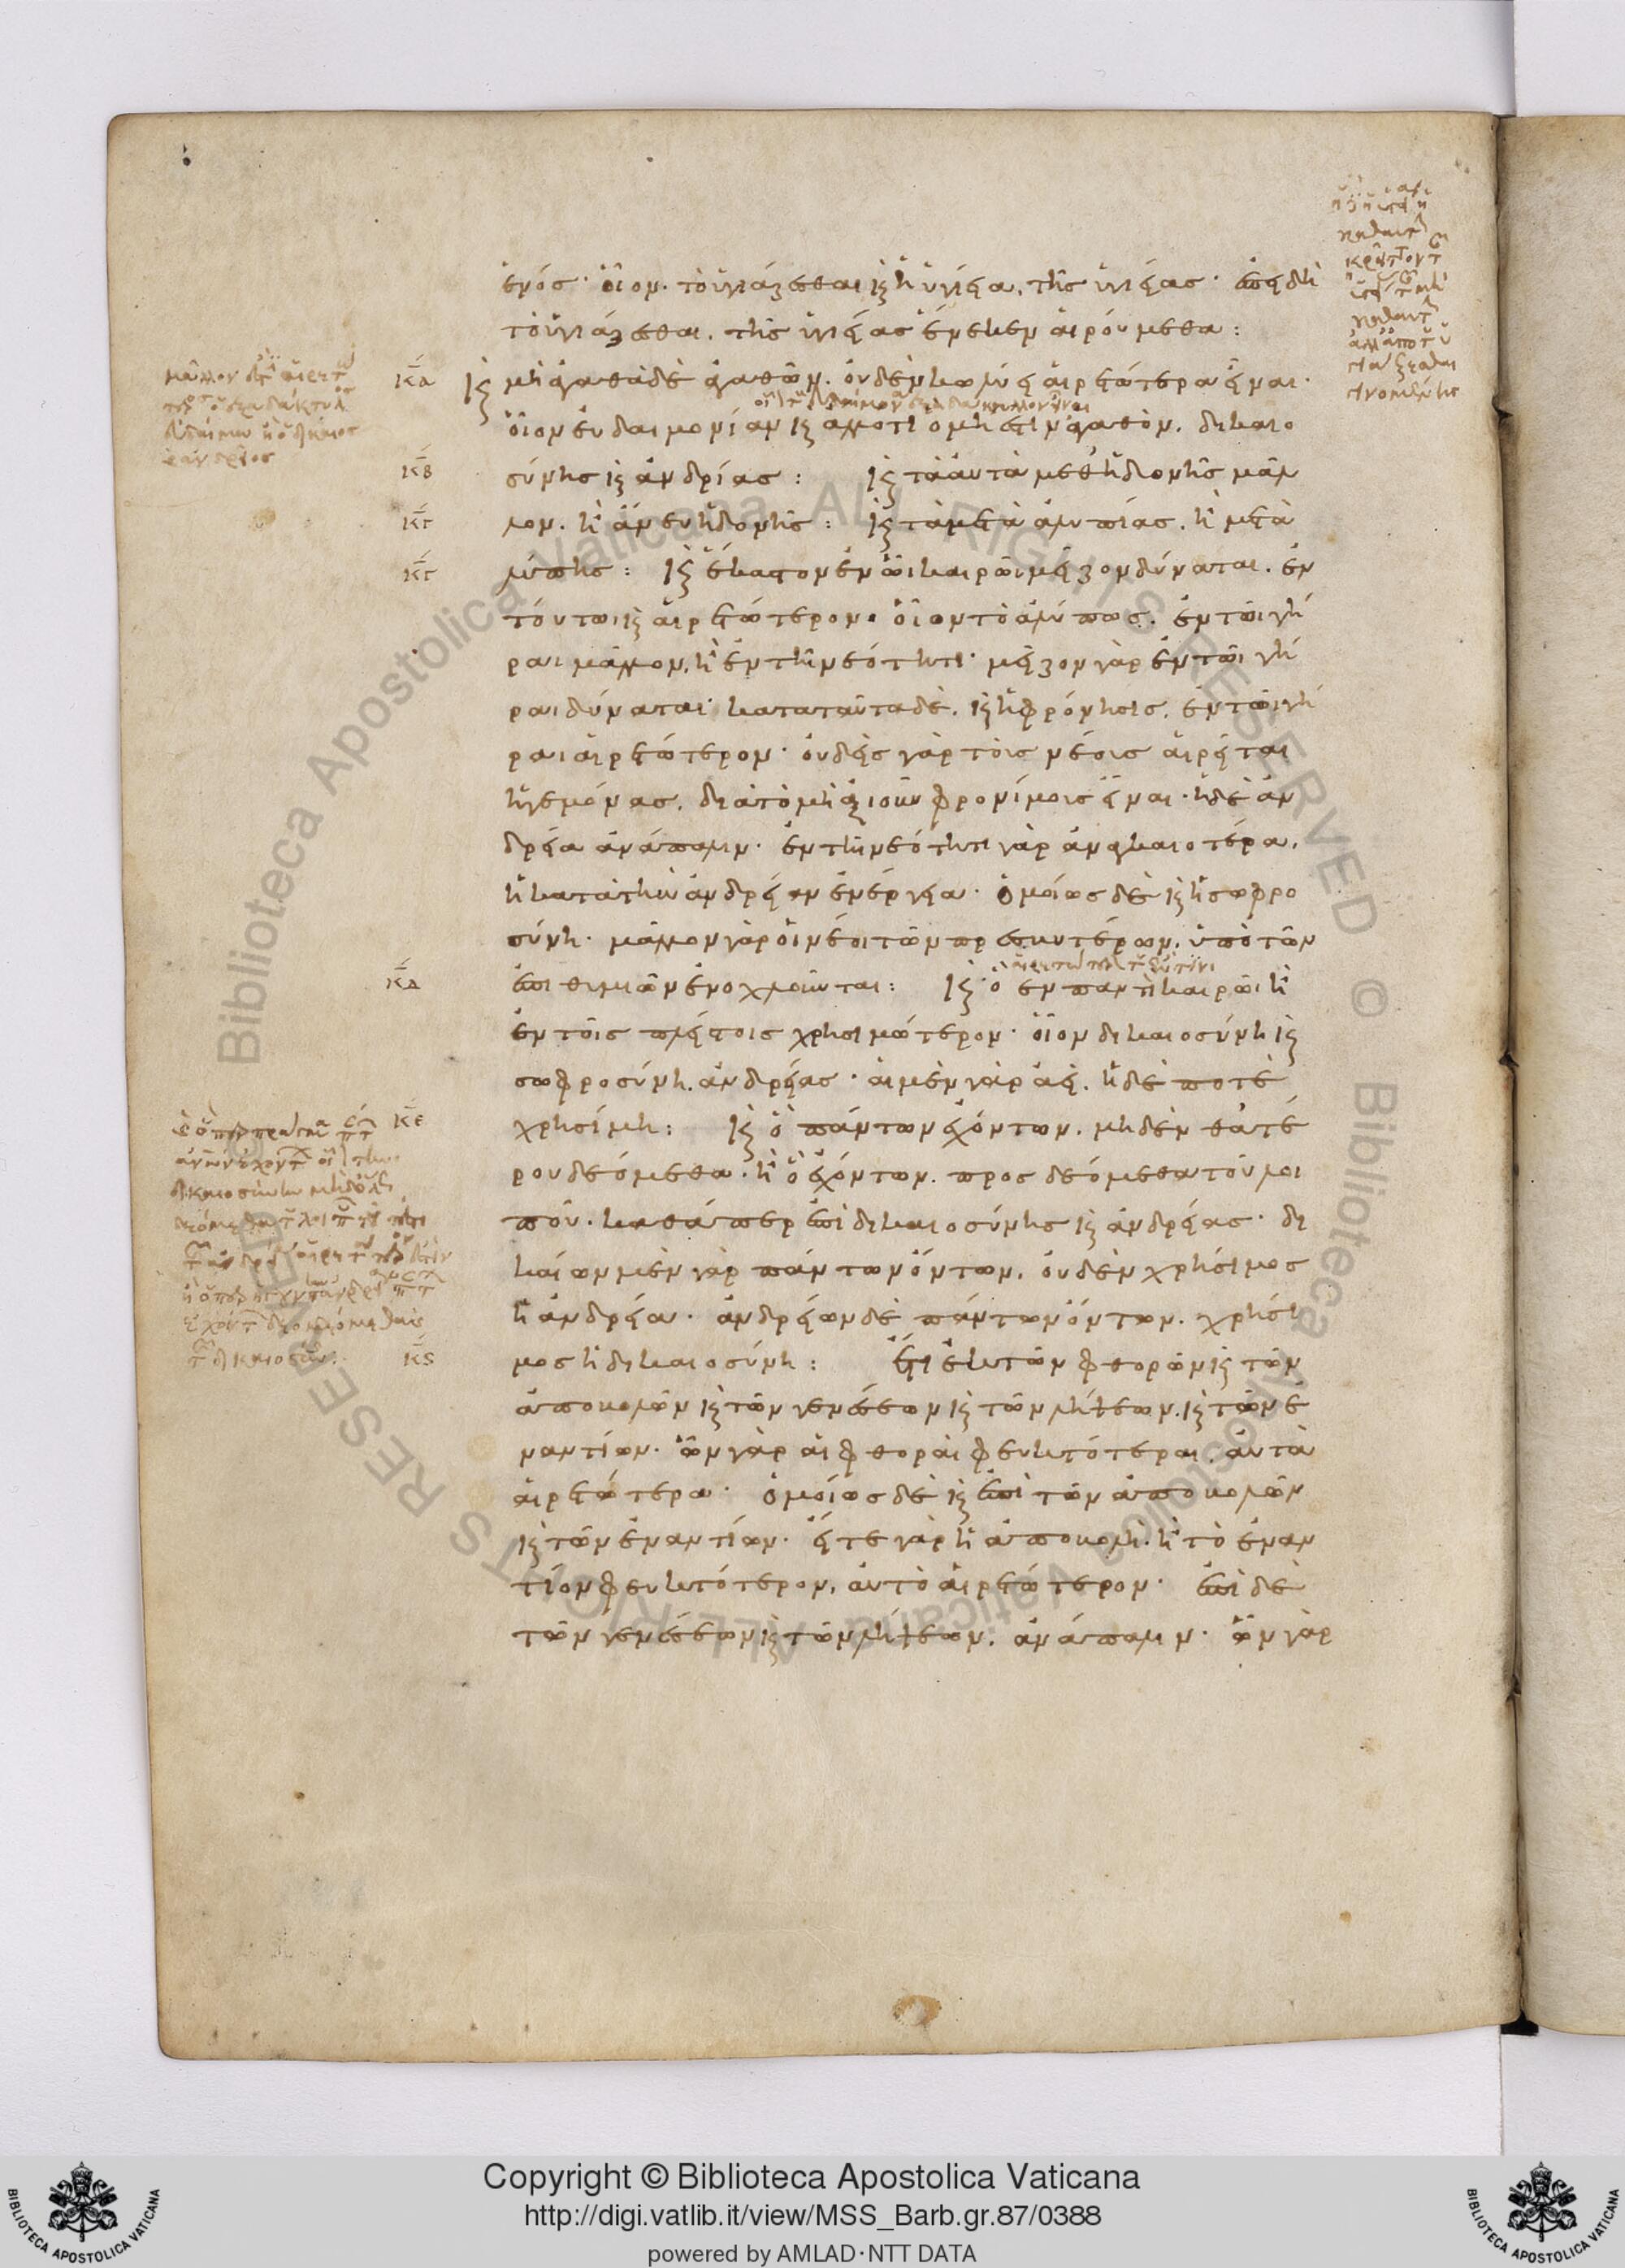 ἑνός· οἷον. τὸ ὑγιάζεσθαι καὶ ἡ ὑγίεια, τῆς ὑγιείας· ἐπειδὴ
τὸ ὑγιάζεσθαι. τῆς ὑγιείας ἕνεκεν αἱρούμεθα:
κα καὶ μὴ ἀγαθὰ δὲ ἀγαθῶν. οὐδὲν κωλύει αἱρετώτερα εἶναι.
οἷον εὐδαιμονίαν καὶ ἄλλο τι ὃ μή ἐστιν ἀγαθὸν. δικαιο
κβ σύνης καὶ ἀνδρίας: καὶ τὰ αὐτὰ μεθ' ἡδονῆς μᾶλ
κγ λον. ἢ ἄνευ ἡδονῆς: καὶ τὰ μετὰ ἀλυπίας. ἢ μετὰ
κγ λύπης: καὶ ἕκαστον ἐν ὧι καιρῶι μεῖζον δύναται. ἐν
τούτωι καὶ αἱρετώτερον. οἷον τὸ ἀλύπως. ἐν τῶι γή
ραι μᾶλλον. ἢ ἐν τῆι νεότητι· μεῖζον γὰρ ἐν τῶι γή
ραι δύναται· κατα ταῦτα δὲ. καὶ ἡ φρόνησις. ἐν τῶι γή
ραι αἱρετώτερον· οὐδεὶς γὰρ τοὺς νέους αἱρεῖται
ἡγεμόνας. διὰ τὸ μὴ ἀξιοῦν φρονίμους εἶναι· ἡ δὲ ἀν
δρεία ἀνάπαλιν· ἐν τῆι νεότητι γὰρ ἀναγκαιοτέρα.
ἡ κατὰ τὴν ἀνδρείαν ἐνέργεια· ὁμοίως δὲ καὶ ἡ σωφρο
σύνη· μᾶλλον γὰρ οἱ νέοι τῶν πρεσβυτέρων. ὑπὸ τῶν
κδ ἐπιθυμιῶν ἐνοχλοῦνται: καὶ ὃ ἐν παντὶ καιρῶι ἢ
ἐν τοῖς πλείστοις χρησιμώτερον· οἷον δικαιοσύνη καὶ
σωφροσύνη. ἀνδρείας· αἱ μὲν γὰρ ἀεὶ. ἡ δὲ ποτὲ
κε χρησίμη: καὶ ὃ πάντων ἐχόντων. μηδὲν θατέ
ρου δεόμεθα· ἢ ὃ ἐχόντων. προσδεόμεθα τοῦ λοι
ποῦ. καθάπερ ἐπὶ δικαιοσύνης καὶ ἀνδρείας· δι
καίων μὲν γὰρ πάντων ὄντων. οὐδὲν χρήσιμος
ἡ ἀνδρεία. ἀνδρείων δὲ πάντων ὄντων. χρήσι
κς μος ἡ δικαιοσύνη: ἔτι ἐκ τῶν φθορῶν καὶ τῶν
ἀποβολῶν καὶ τῶν γενέσεων καὶ τῶν λήψεων. καὶ τῶν ἐ
ναντίων. ὧν γὰρ αἱ φθοραὶ φευκτότεραι. αὐτὰ
αἱρετώτερα· ὁμοίως δὲ καὶ ἐπὶ τῶν ἀποβολῶν
καὶ τῶν ἐναντίων. εἴ τε γὰρ ἡ ἀποβολὴ. ἢ τὸ ἐναν
τίον φευκτότερον, αὐτὸ αἱρετώτερον· ἐπὶ δὲ
τῶν γενέσεων καὶ τῶν λήψεων. ἀνάπαλιν· ὧν γὰρ
Copyright © Biblioteca Apostolica Vaticana
http://digi.vatlib.it/view/MSS_Barb.gr.87/0388
powered by AMLAD·NTT DATA